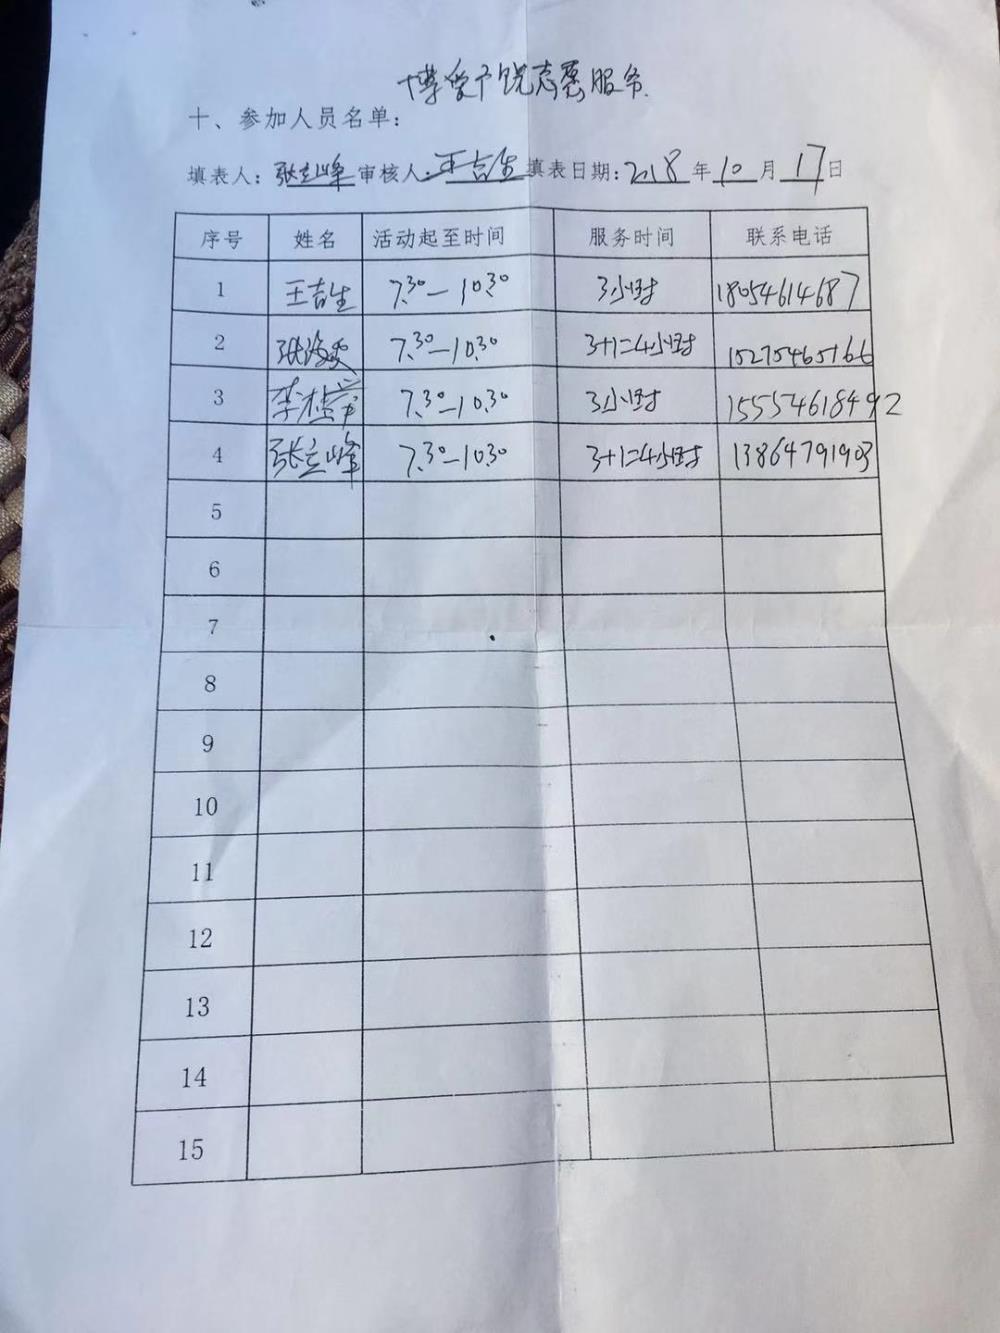 博爱予锐志愿服务
十、参加人员名单:
填表人:张立峰 审核人:王吉生 填表日期:2018年10月17日
序号 姓名 活动起至时间 服务时间 联系电话
1 王吉生 7.30—10.30 3小时 18054614687
2 张海 7.30—10.30 3+1=4小时 15275465166
3 李桂 7.30—10.30 3小时 15554618492
4 张立峰 7.30—10.30 3+1=4小时 13864791903
5
6
7
8
9
10
11
12
13
14
15